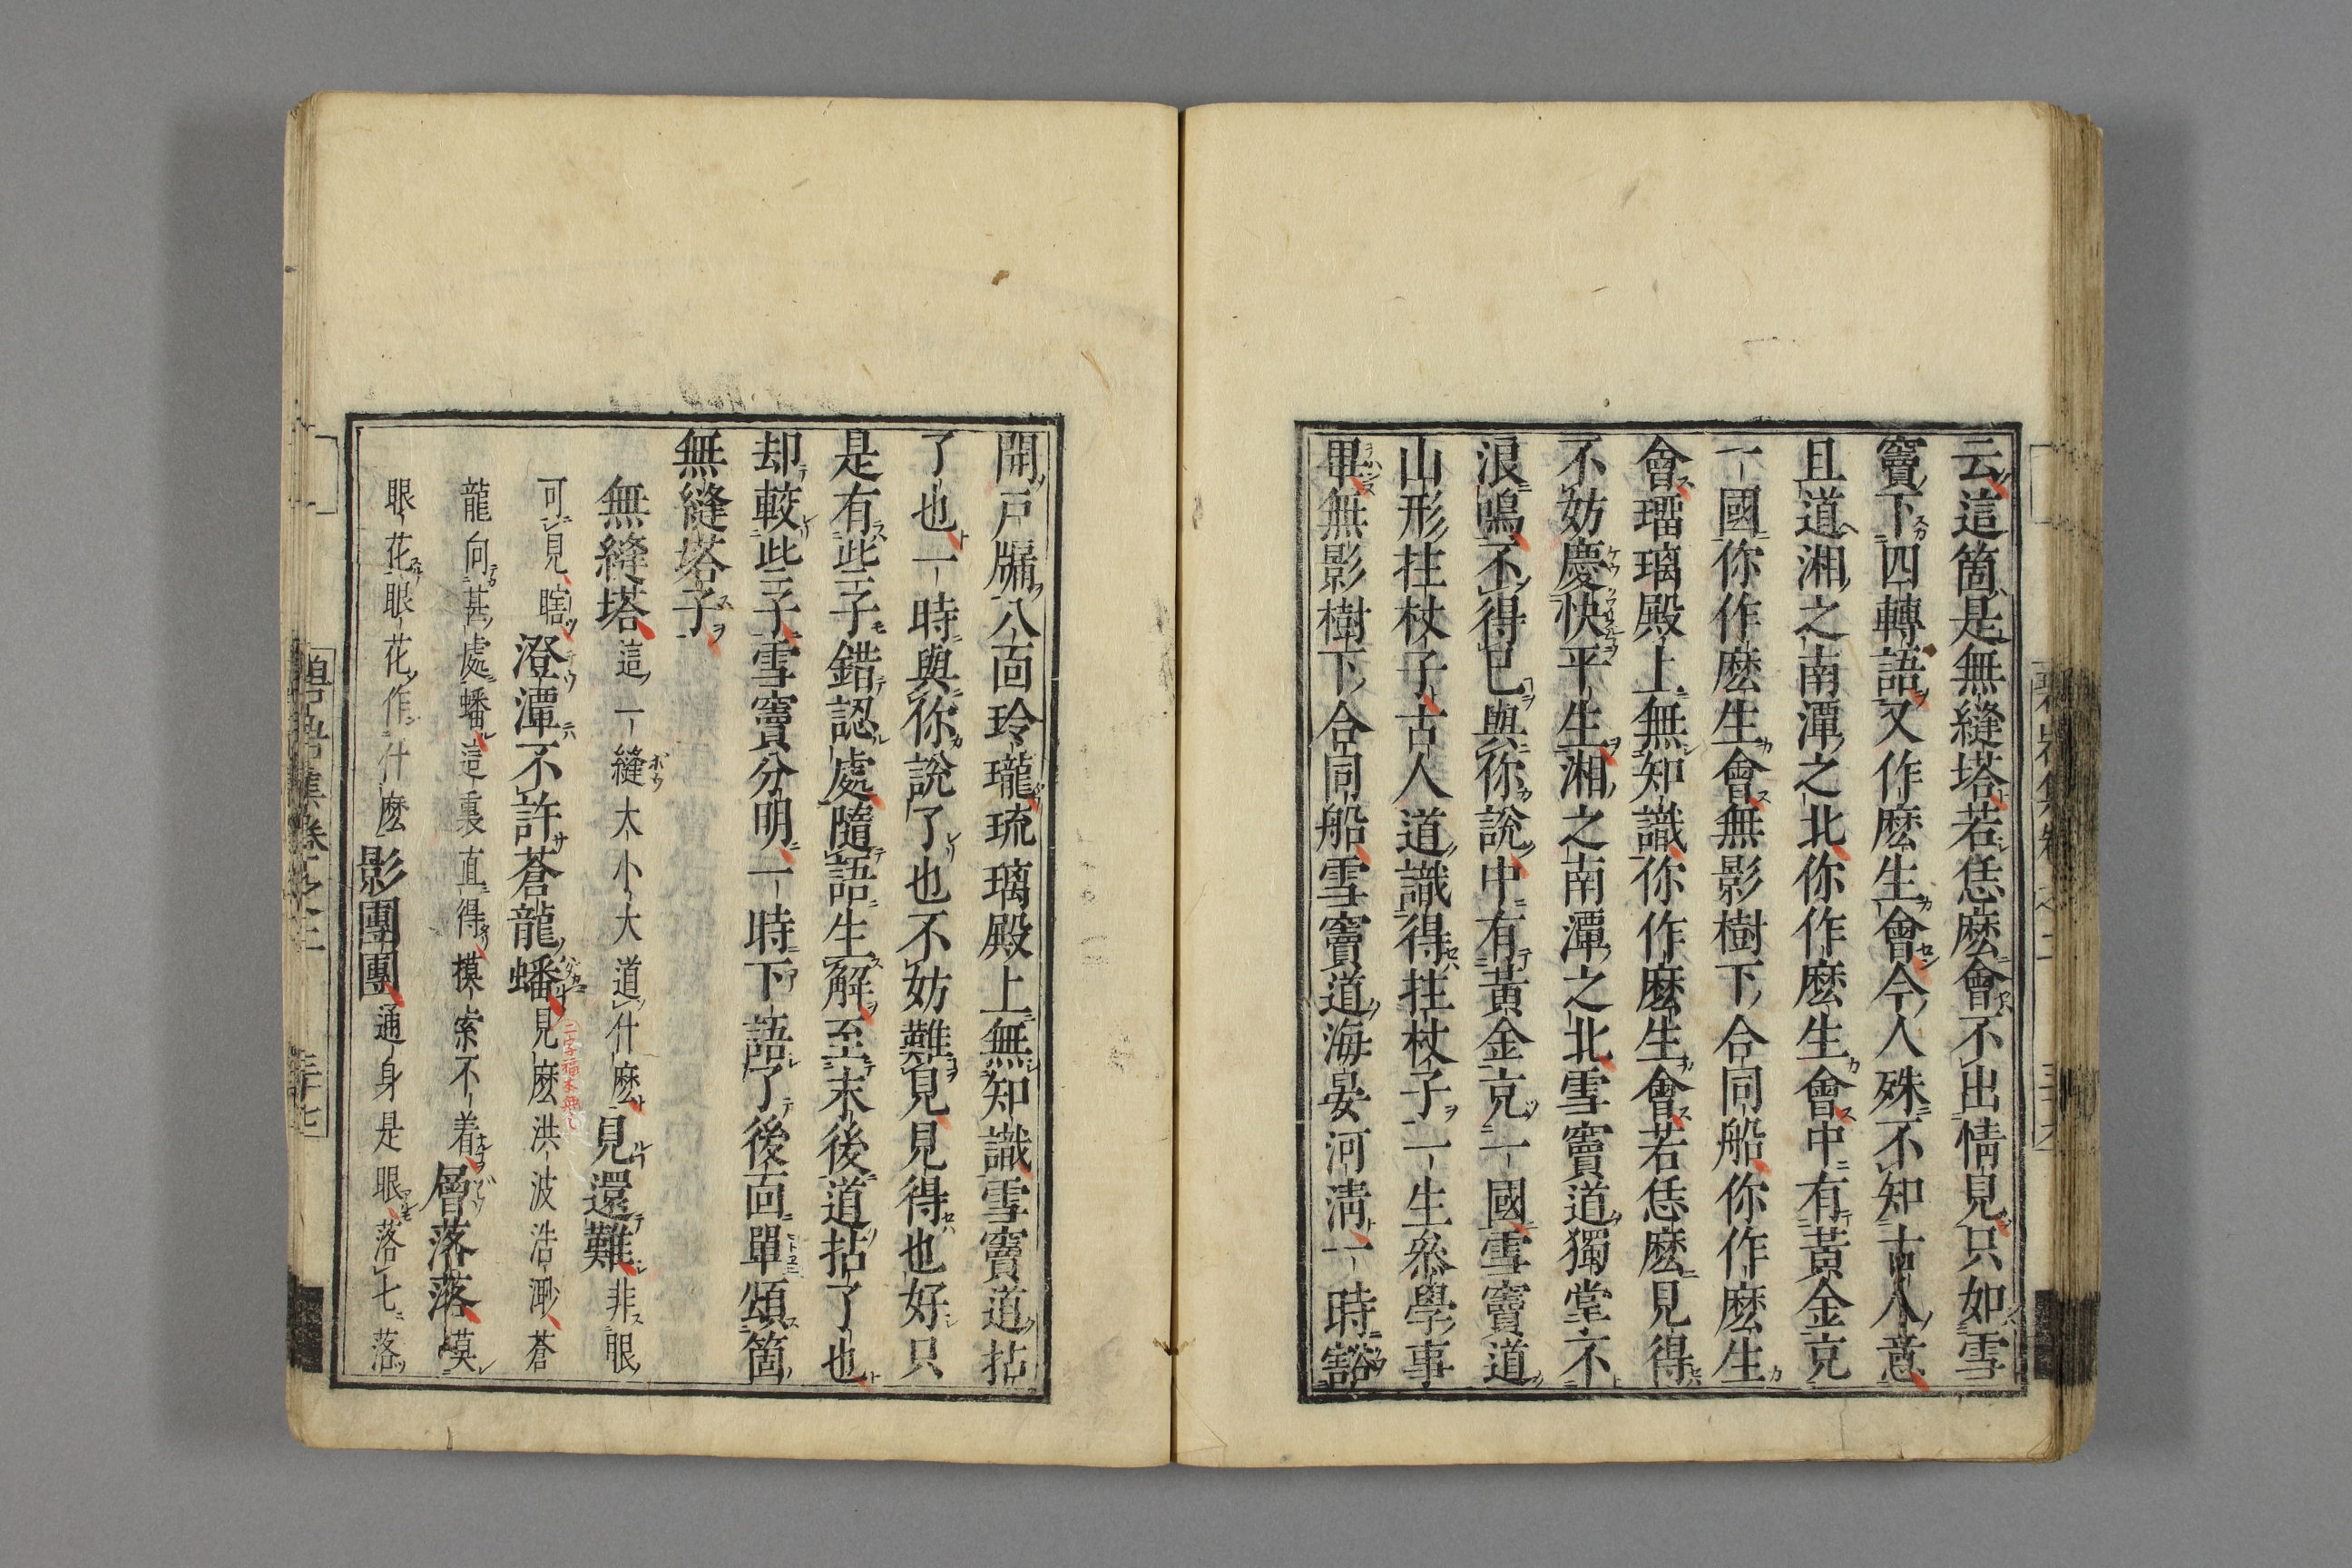 云這箇是無縫塔若恁麽會不出情見只如雪
竇下四轉語又作麽生會今人殊不知古人意
且道湘之南潭之北你作麽生會中有黃金充
一國你作麽生會無影樹下合同船你作麽生
會瑠璃殿上無知識你作麽生會若恁麽見得
不妨慶快平生湘之南潭之北雪竇道獨掌不
浪鳴不得已與你說中有黃金充一國雪竇道
山形拄杖子古人道識得拄杖子一生參學事
畢無影樹下合同船雪竇道海晏河淸一時豁
開戶牖八面玲瓏琉璃殿上無知識雪竇道拈
了也一時與你說了也不妨難見見得也好只
是有些子錯認處隨語生解至末後道拈了也
却較些子雪竇分明一時下語了後面單頌箇
無縫塔子
無縫塔這一縫大小大道什麽見還難非眼
可見瞎澄潭不許蒼龍蟠見麽洪波浩渺蒼
二字福本無
龍向甚處蟠這裏直得摸索不着層落落莫
眼花眼花作什麽影團團通身是眼落七落
碧岩集卷之二
三十七